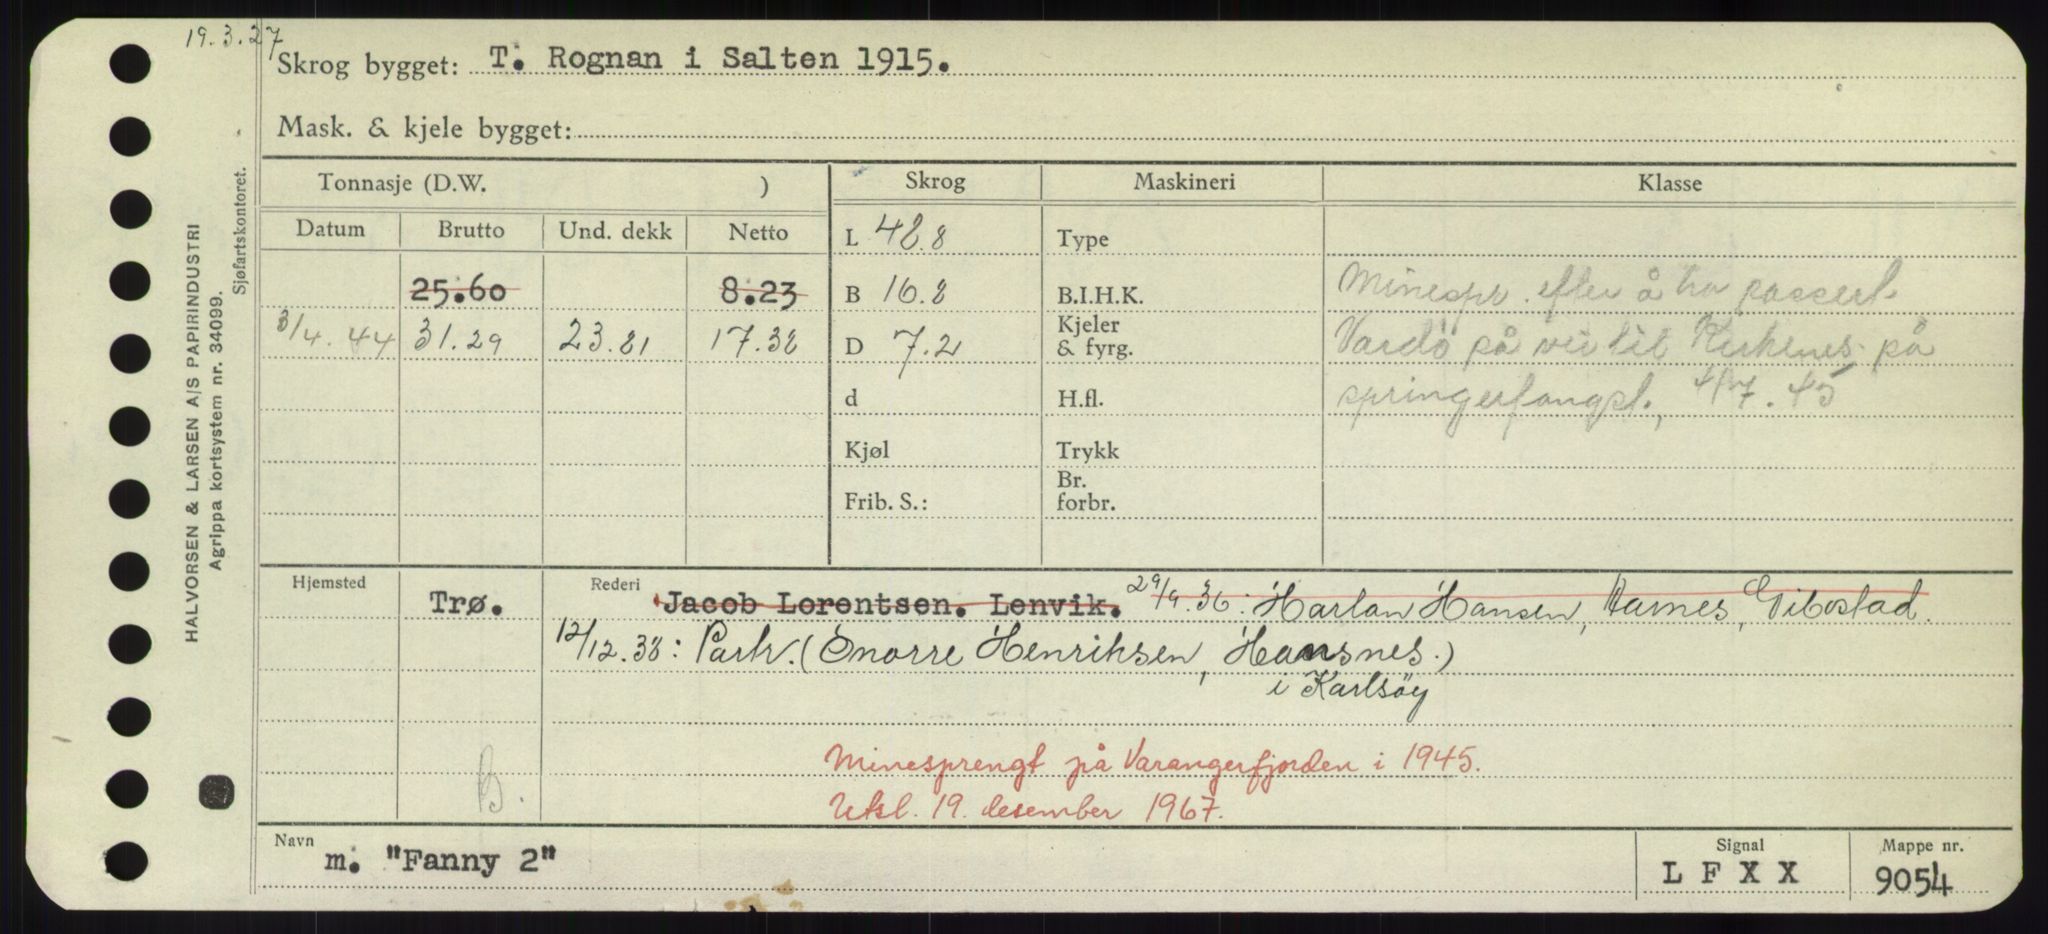 19.3.27
Skrog bygget: T. Rognan i Salten 1915.
Mask. & kjele bygget:
HALVORSEN & LARSEN A/S PAPIRINDUSTRI
Agrippa kortsystem nr. 34099.
Sjøfartskontoret.
Tonnasje (D.W. )
Datum Brutto Und. dekk Netto
25.60 8.23
3/4. 44 31.29 23.81 17.38
Skrog
L 48.8
B 16.8
D 7.2
d
Kjøl
Frib. S.:
Maskineri
Type
B.I.H.K.
Kjeler
& fyrg.
H.fl.
Trykk
Br.
forbr.
Klasse
Minespr. efter å ha passert
Vardö på vei til Kirkenes på
springerfangst, 7.45
Hjemsted Trø.
Rederi Jacob Lorentsen. Lenvik. 29/9.36: Harlan Hansen, Gibostad.
12/12.38: Partr. (Snorre Henriksen, Hansnes.)
i Karlsöy
Minesprengt på Varangerfjorden i 1945.
B. Utsl. 19. desember 1967.
Navn m. "Fanny 2"
Signal L F X X
Mappe nr. 9054